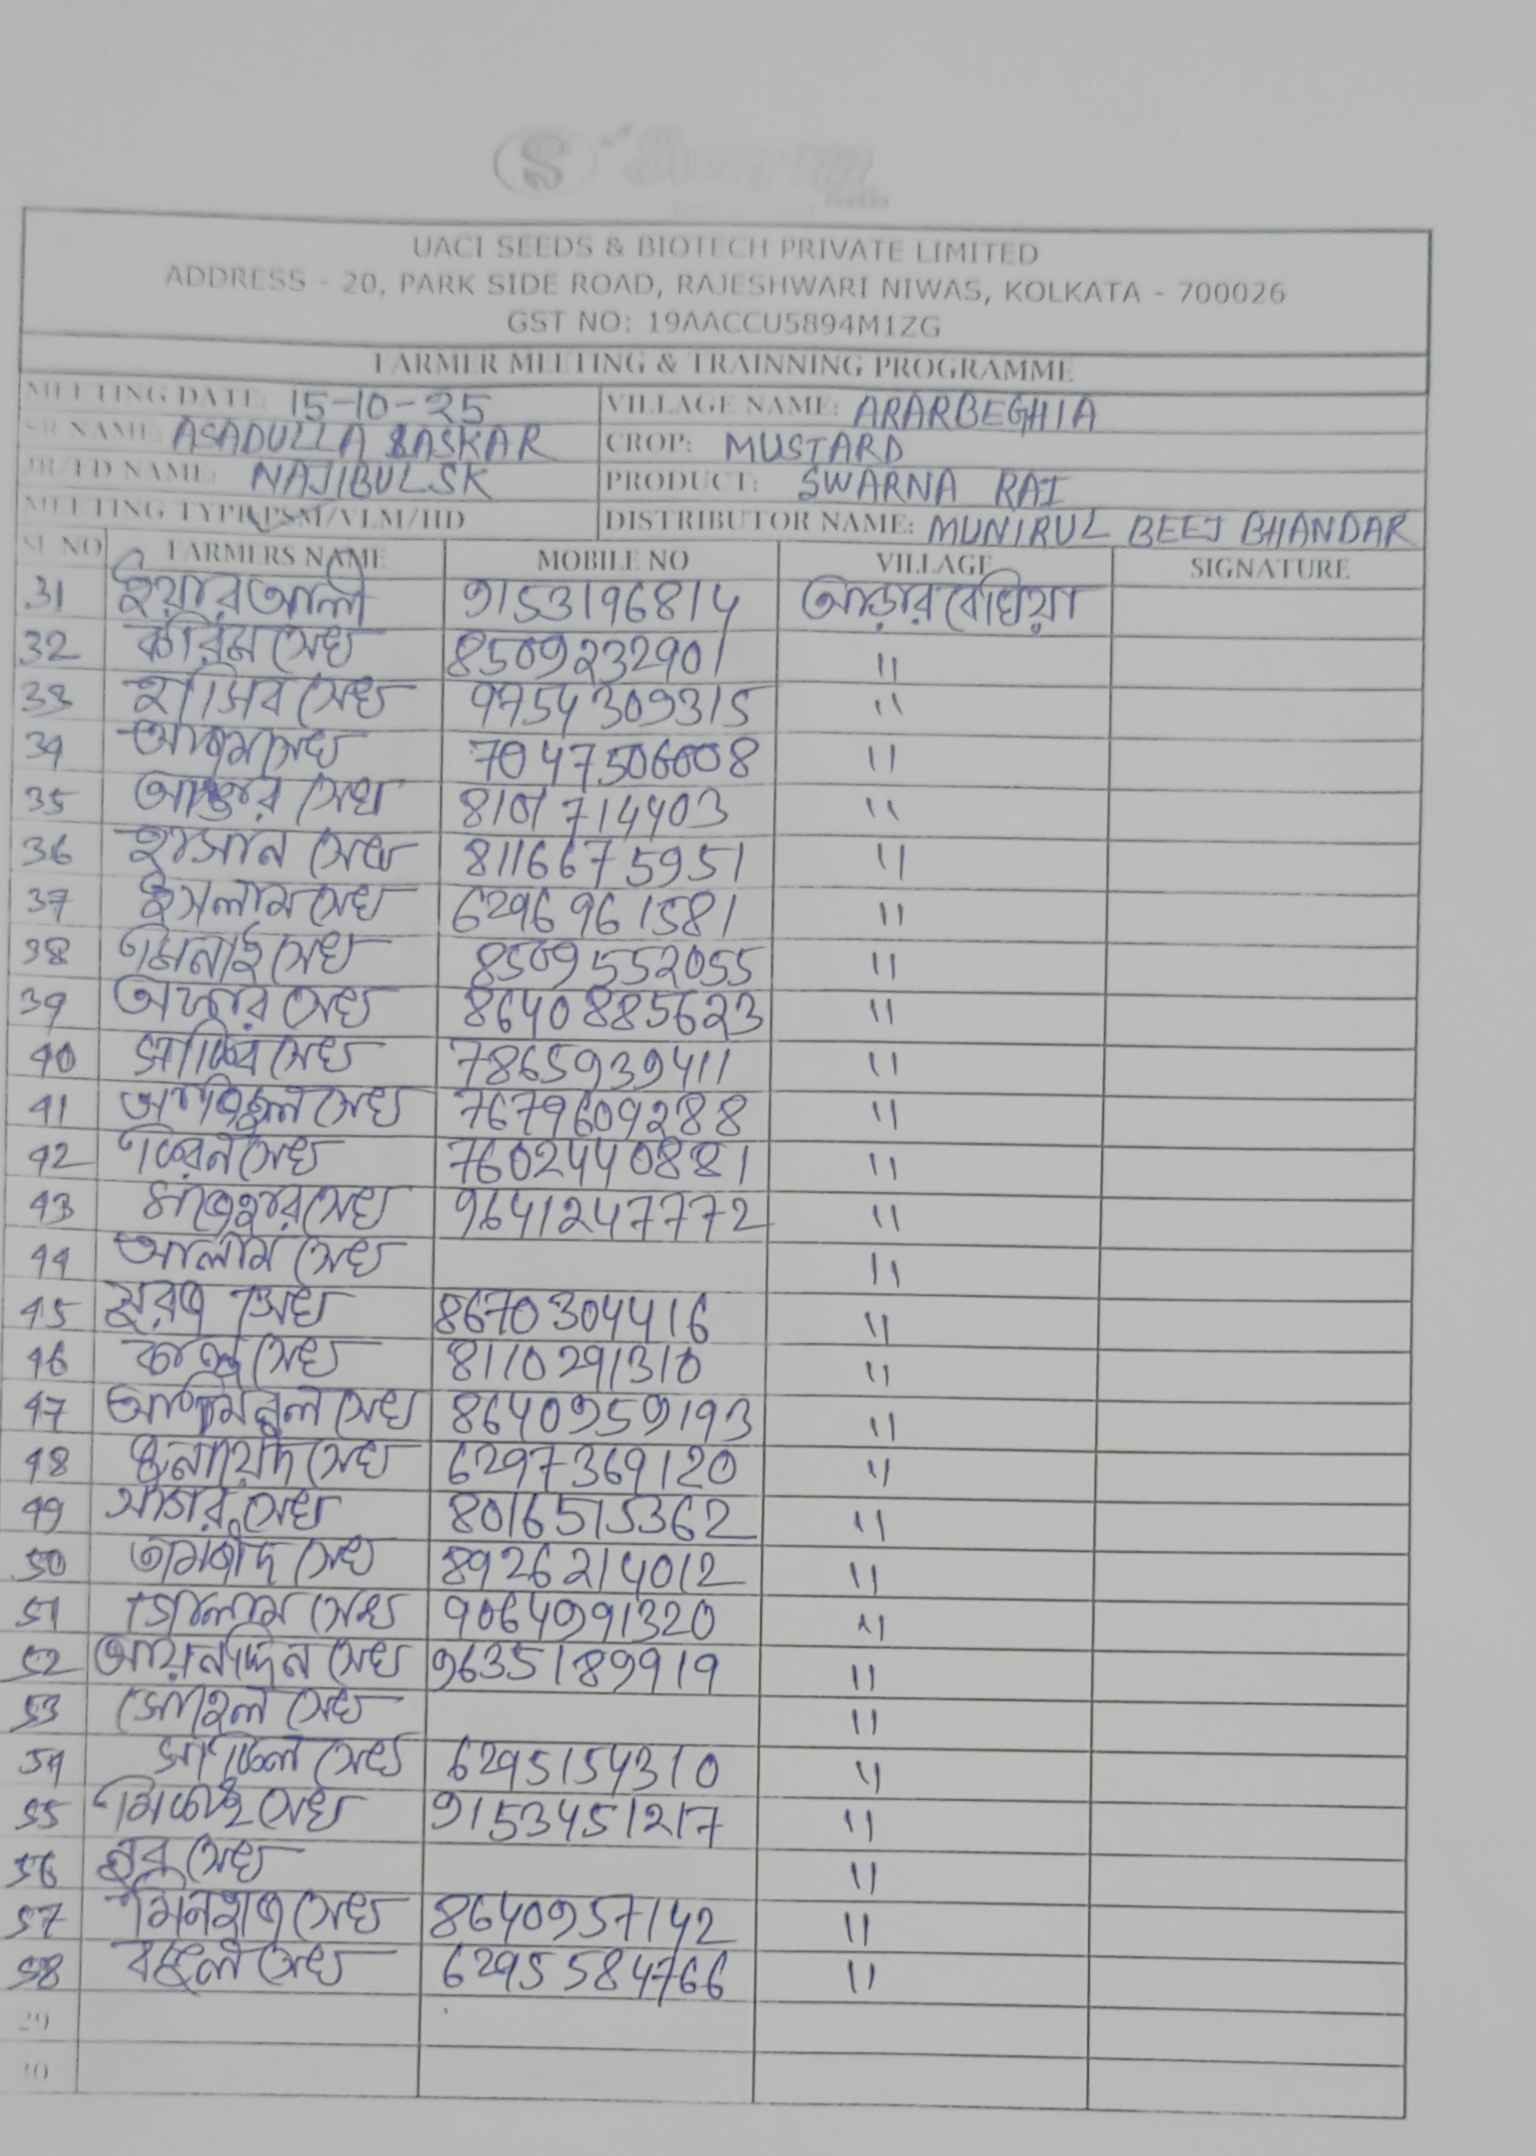 S
UACI SEEDS & BIOTECH PRIVATE LIMITED
ADDRESS - 20, PARK SIDE ROAD, RAJESHWARI NIWAS, KOLKATA - 700026
GST NO: 19AACCU5894M1ZG
FARMER MEETING & TRAINNING PROGRAMME
MEETING DATE: 15-10-25 VILLAGE NAME: ARARBEGHIA
SR NAME: ASADULLA LASKAR CROP: MUSTARD
JR/FD NAME: NAJIBUL SK PRODUCT: SWARNA RAI
MEETING TYPE: PSM/VLM/HD DISTRIBUTOR NAME: MUNIRUL BEEJ BHANDAR
SL NO FARMERS NAME MOBILE NO VILLAGE SIGNATURE
31 ইয়ার আলী 9153196814 আড়ার বেঘিয়া
32 করিম সেখ 8509232901 "
33 হাসিব সেখ 9754309315 "
34 সেখ 7047506008 "
35 সেখ 8101714403 "
36 হাসান সেখ 8116675951 "
37 ইসলাম সেখ 6296961581 "
38 মিনাই সেখ 8509552055 "
39 সেখ 8640885623 "
40 সাকিব সেখ 7865939411 "
41 সেখ 7679609288 "
42 সেখ 7602440881 "
43 সেখ 9641247772 "
44 আলাম সেখ "
45 সুরজ সেখ 8670304416 "
46 সেখ 8110291310 "
47 সেখ 8640959193 "
48 জুনায়েদ সেখ 6297369120 "
49 সাগর সেখ 8016515362 "
50 সেখ 8926214012 "
51 গোলাম সেখ 9064991320 "
52 আয়নদ্দিন সেখ 9635189919 "
53 সোহেল সেখ "
54 সেখ 6295154310 "
55 সেখ 9153451217 "
56 সেখ "
57 মিনহাজ সেখ 8640957142 "
58 সেখ 6295584766 "
29
30